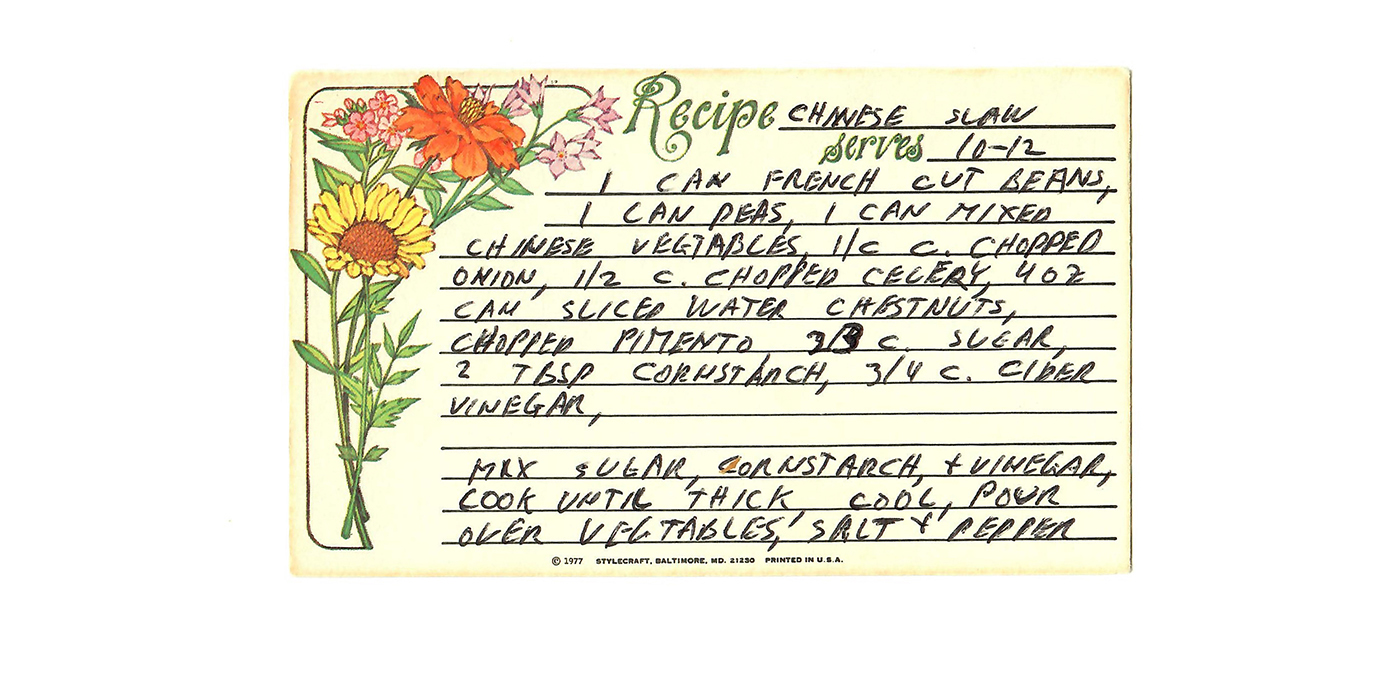 Recipe CHINESE SLAW
serves 10-12
1 CAN FRENCH CUT BEANS,
1 CAN PEAS, 1 CAN MIXED
CHINESE VEGTABLES, 1/c c. CHOPPED
ONION, 1/2 c. CHOPPED CELERY, 4 OZ
CAN SLICED WATER CHESTNUTS,
CHOPPED PIMENTO, 3/3 c. SUGAR,
2 TBSP CORNSTARCH, 3/4 c. CIDER
VINEGAR,
MIX SUGAR, CORNSTARCH, + VINEGAR,
COOK UNTIL THICK, COOL, POUR
OVER VEGTABLES, SALT + PEPPER
© 1977 STYLECRAFT, BALTIMORE, MD. 21230 PRINTED IN U.S.A.